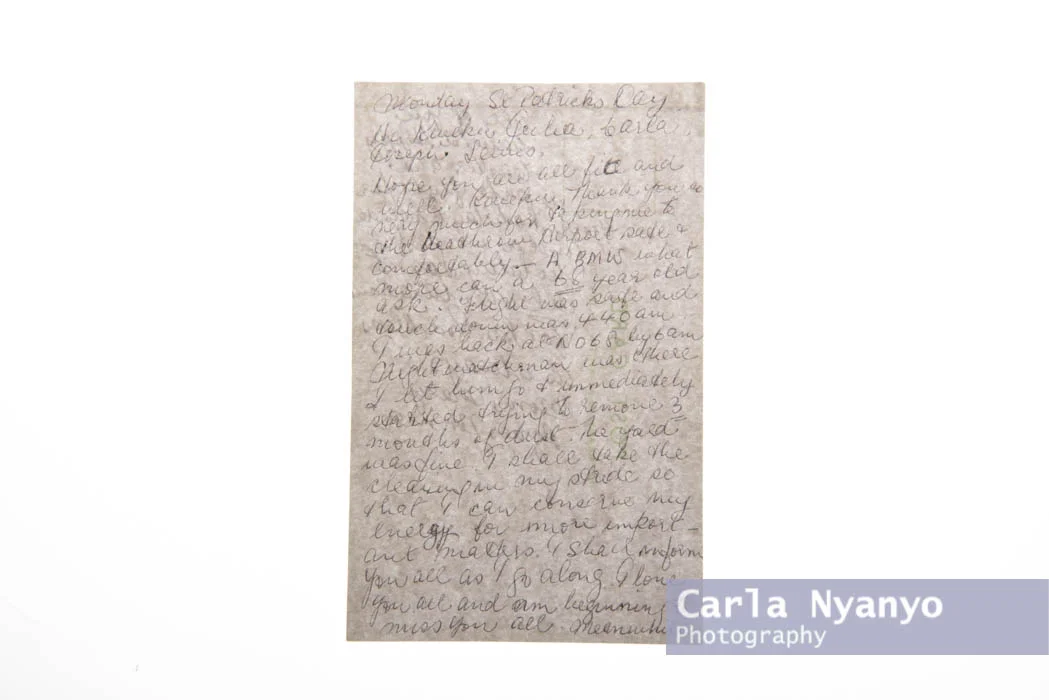 Monday St Patricks Day
Hi Kweku, Julia, Carla,
Joseph.
Hope you are all fit and
well. Kweku, Thank you so
very much for to
the Heathrow Airport safe &
comfortably – A BMW what
more can a 68 year old
ask. Flight was safe and
touch down was 440am
I was back at N068 by 6am
Nightwatchman was there
I let him go & immediately
started trying to remove 3
months of dust. The yard
was fine. I shall take the
cleaning in my stride so
that I can conserve my
energy for more import-
ant matters. I shall inform
you all as I go along. I love
you all and am beginning
miss you all.
Carla Nyanyo
Photography